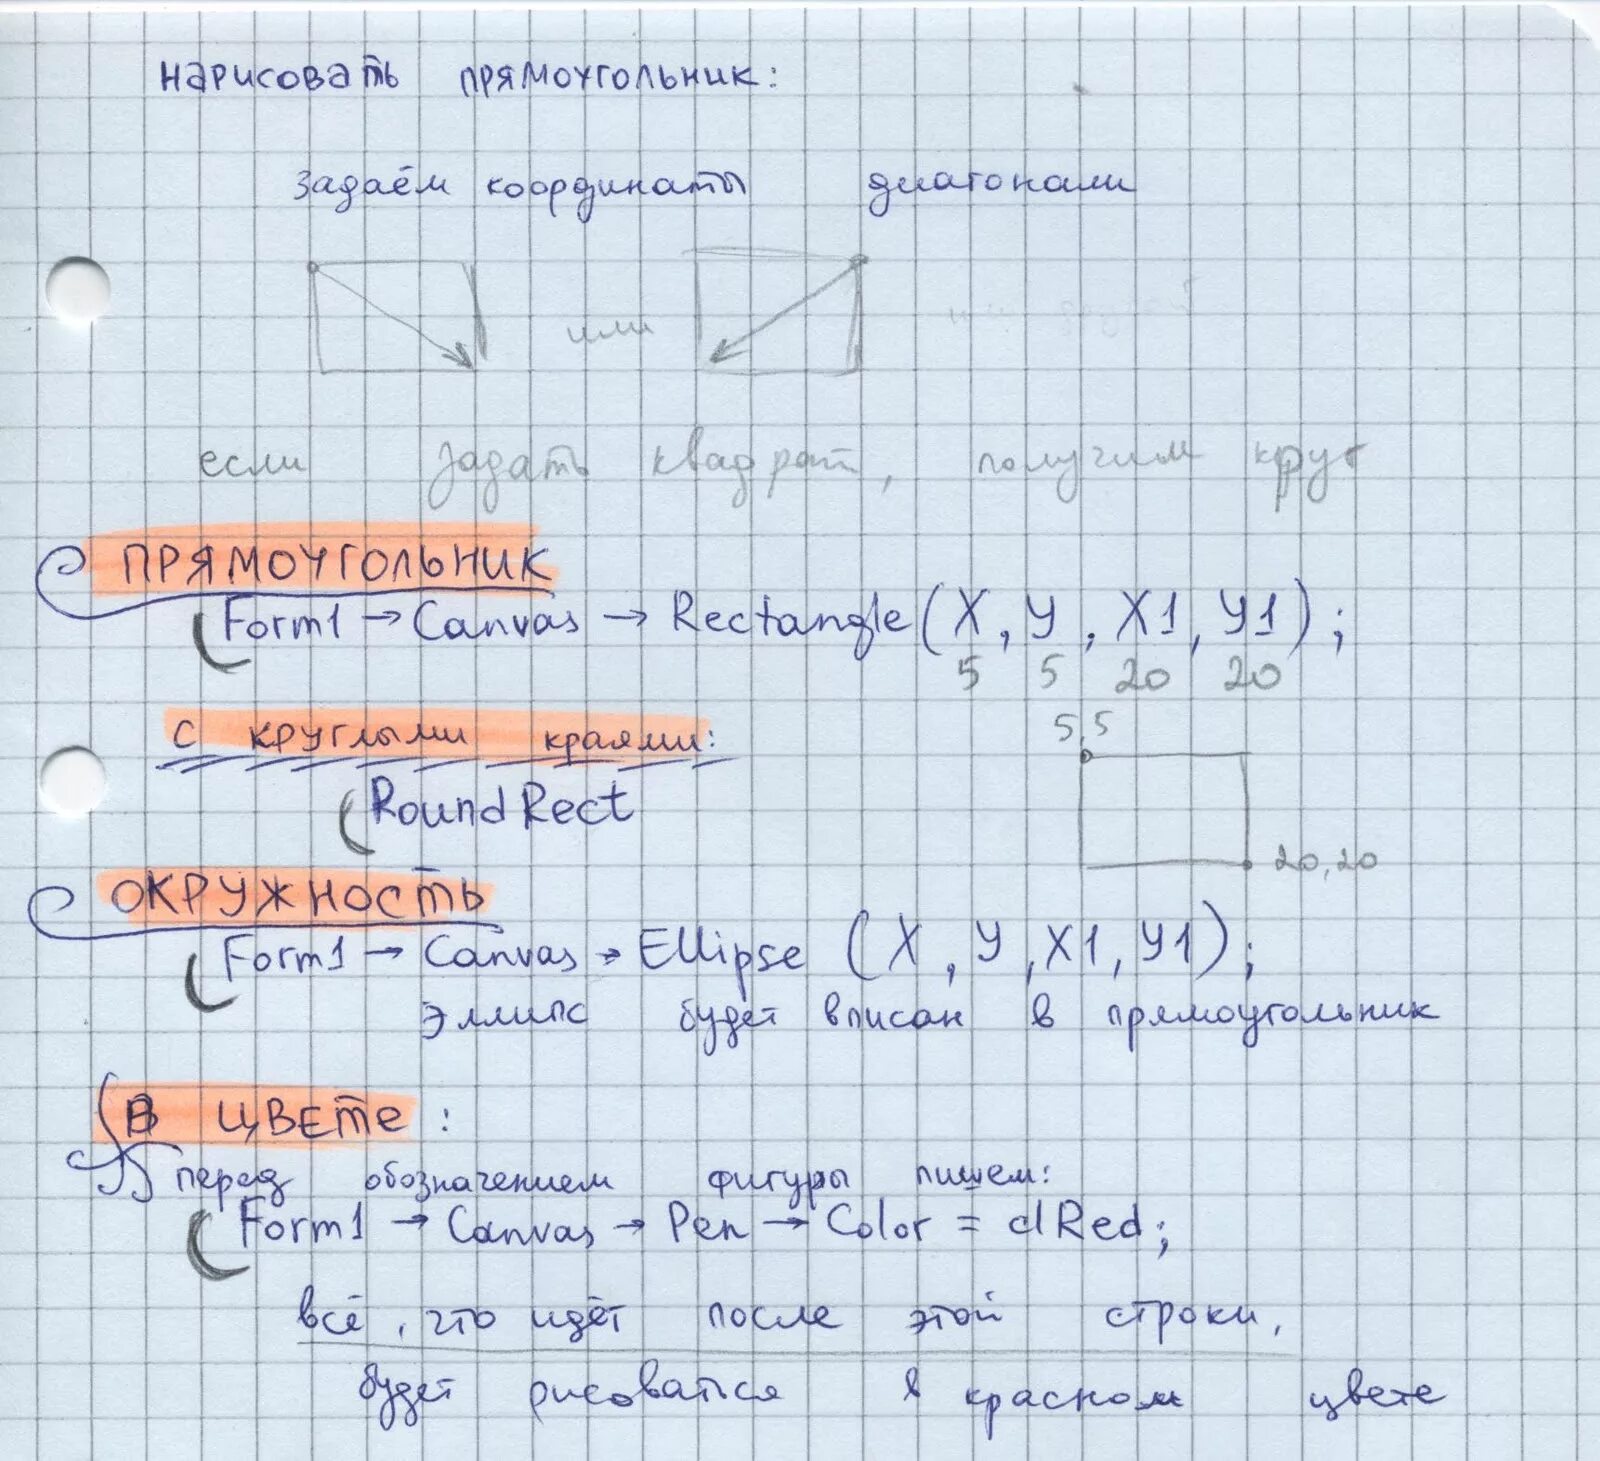 нарисовать прямоугольник:
задаём координаты диагонали
или
если задать квадрат, получим круг
ПРЯМОУГОЛЬНИК
Form1 → Canvas → Rectangle (X, Y, X1, Y1);
5 5 20 20
с круглыми краями:
5,5
RoundRect
20,20
ОКРУЖНОСТЬ
Form1 → Canvas → Ellipse (X, Y, X1, Y1);
эллипс будет вписан в прямоугольник
В ЦВЕТЕ:
перед обозначением фигуры пишем:
Form1 → Canvas → Pen → Color = clRed;
всё, что идёт после этой строки,
будет рисоваться в красном цвете